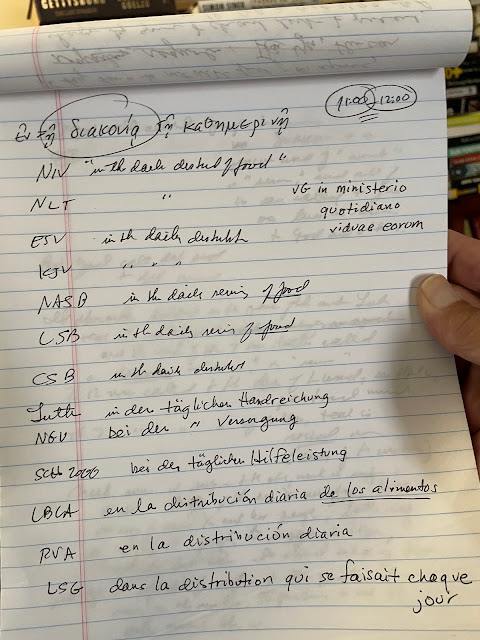 GETTYSBURG
SIMON SINGH
11:00 12:00
ἐν τῇ διακονίᾳ τῇ καθημερινῇ
NIV "in th daily distribut of food"
NLT "
VG in ministerio
quotidiano
viduae eorum
ESV in th daily distribut
KJV " " "
NASB in the daily serving of food
LSB in th daily serving of food
CSB in th daily distribut
Luth in der täglichen Handreichung
NGÜ bei der " Versorgung
Schl 2000 bei der täglichen Hilfeleistung
LBLA en la distribución diaria de los alimentos
RVA en la distribución diaria
LSG dans la distribution qui se faisait chaque
jour